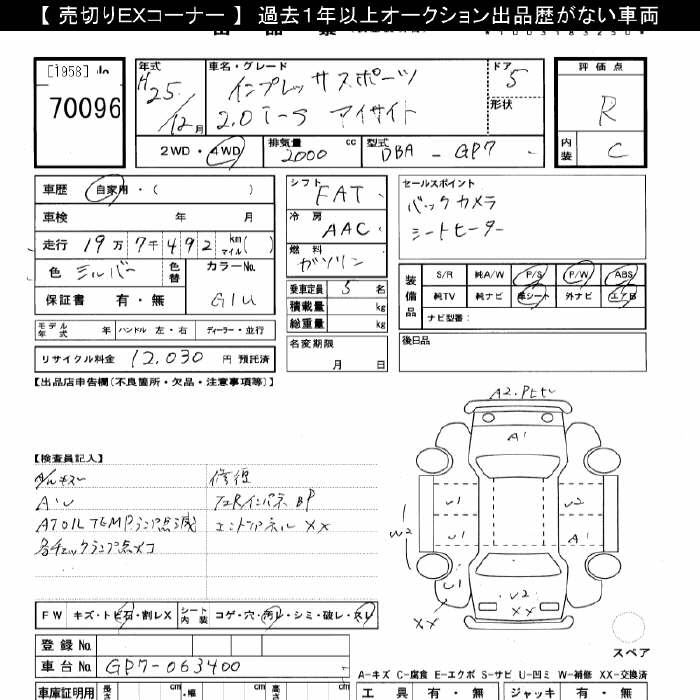 【 売切りEXコーナー 】 過去１年以上オークション出品歴がない車両
[1958]
70096
年式
H25/12月
車名・グレード
インプレッサスポーツ
2.0i-S アイサイト
ドア
5
形状
評価点
R
内装
C
2WD・4WD
排気量
2000 cc
型式
DBA - GP7
車歴
自家用・( )
車検
年 月
走行
19万7千492 km マイル( )
色
シルバー
色替
カラーNo.
G1U
保証書
有・無
シフト
FAT
冷房
AAC
燃料
ガソリン
乗車定員 5 名
積載量 kg
総重量 kg
セールスポイント
バックカメラ
シートヒーター
装備品
S/R 純A/W P/S P/W ABS
純TV 純ナビ 革シート 外ナビ エアB
ナビ型番：
モデル年式 年 ハンドル 左・右 ディーラー・並行
リサイクル料金 12,030 円 預託済
名変期限
月 日
後日品
【出品店申告欄(不良箇所・欠品・注意事項等)】
【検査員記入】
AU
AT OIL TEMPランプ点滅
各チェックランプ点灯
修復
エンドパネル XX
A2.
A1
U1
U2
U1
A1
W2
U1
U2
XX
XX
スペア
FW キズ・トビ石・割レX
シート内装 コゲ・穴・汚レ・シミ・破レ・スレ
登録 No.
車台 No. GP7-063400
A-キズ C-腐食 E-エクボ S-サビ U-凹ミ W-補修 XX-交換済
車庫証明用 長さ cm 幅 cm 高さ cm
工具 有・無 ジャッキ 有・無